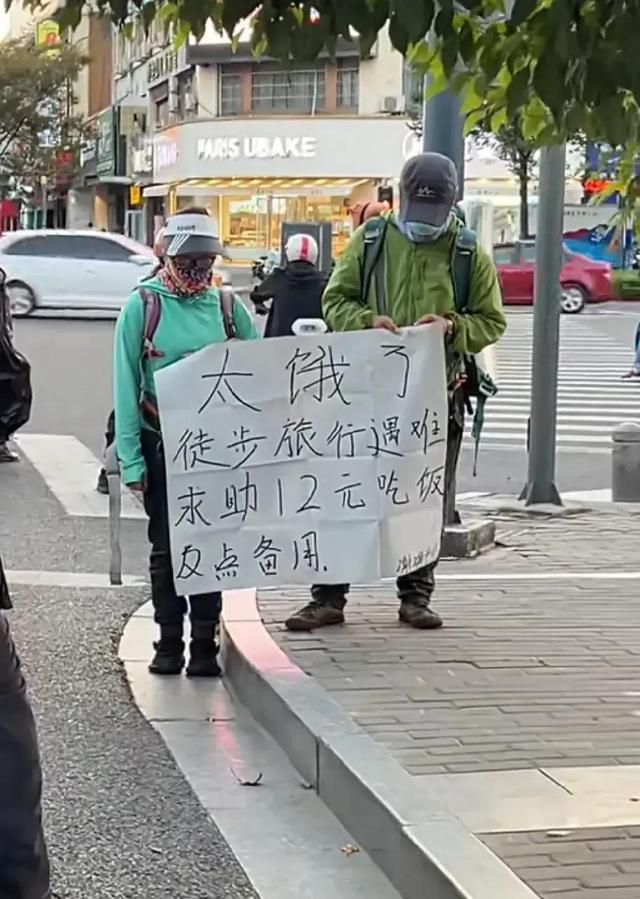 PARIS UBAKE
太饿了
徒步旅行遇难
求助12元吃饭
点备用.